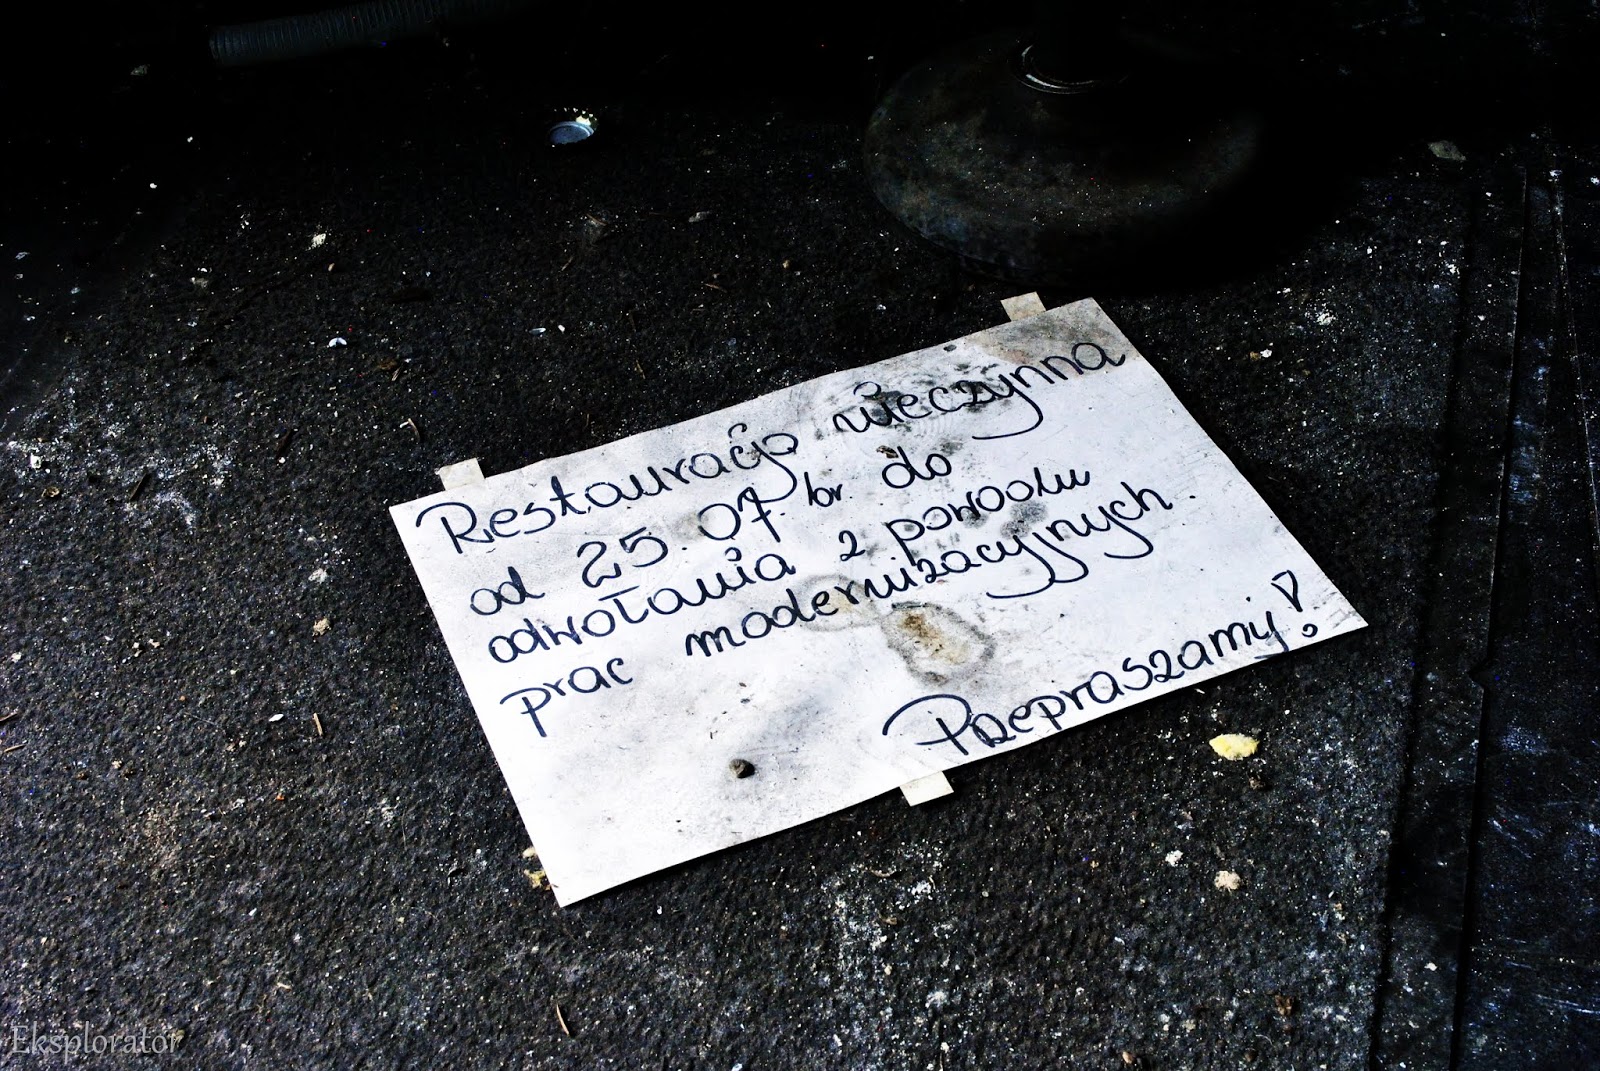 Restauracja nieczynna
od 25.07 br do
odwołania z powodu
prac modernizacyjnych.
Przepraszamy!
Eksplorator